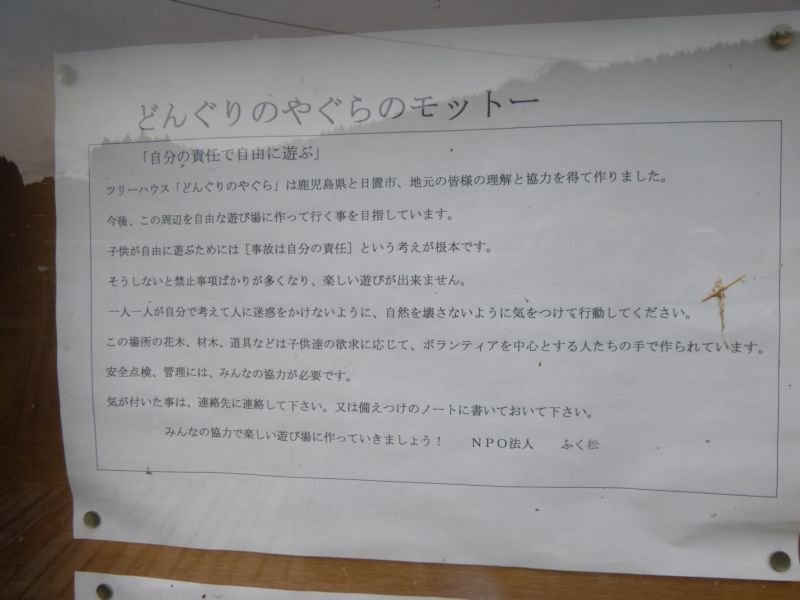 どんぐりのやぐらのモットー
「自分の責任で自由に遊ぶ」
ツリーハウス「どんぐりのやぐら」は鹿児島県と日置市、地元の皆様の理解と協力を得て作りました。
今後、この周辺を自由な遊び場に作って行く事を目指しています。
子供が自由に遊ぶためには［事故は自分の責任］という考えが根本です。
そうしないと禁止事項ばかりが多くなり、楽しい遊びが出来ません。
一人一人が自分で考えて人に迷惑をかけないように、自然を壊さないように気をつけて行動してください。
この場所の花木、材木、道具などは子供達の欲求に応じて、ボランティアを中心とする人たちの手で作られています。
安全点検、管理には、みんなの協力が必要です。
気が付いた事は、連絡先に連絡して下さい。又は備えつけのノートに書いておいて下さい。
みんなの協力で楽しい遊び場に作っていきましょう！　ＮＰＯ法人　ふく松